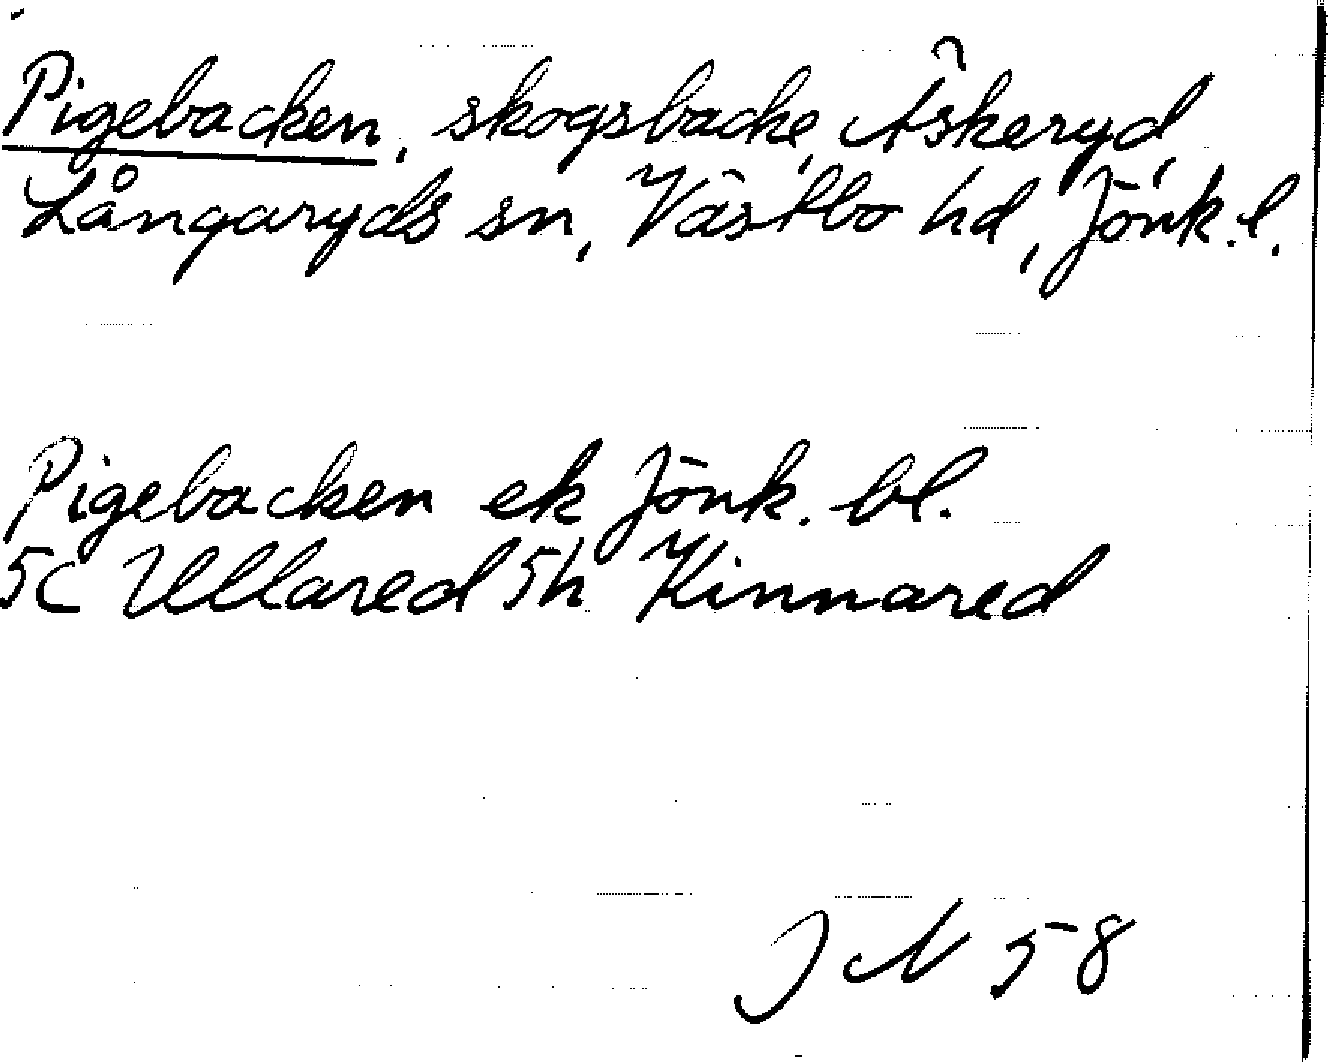 Pigebacken, skogsbacke, Åskeryd,
Långaryds sn, Västbo hd, Jönk. l.
Pigebacken ek Jönk. bl.
5c Ullared 5h Kinnared
J N 58